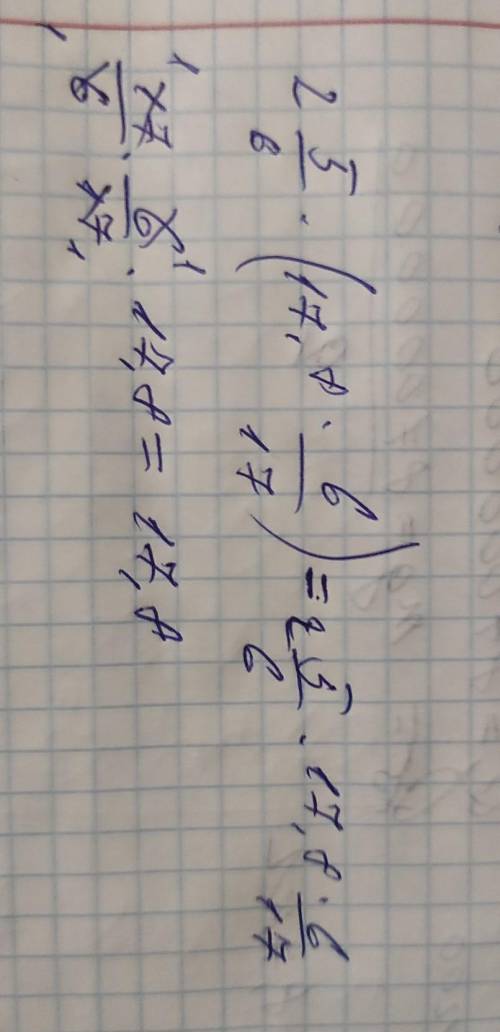 2 5/6 · (17,8 · 6/17) = 2 5/6 · 17,8 · 6/17
17/6 · 6/17 · 17,8 = 17,8